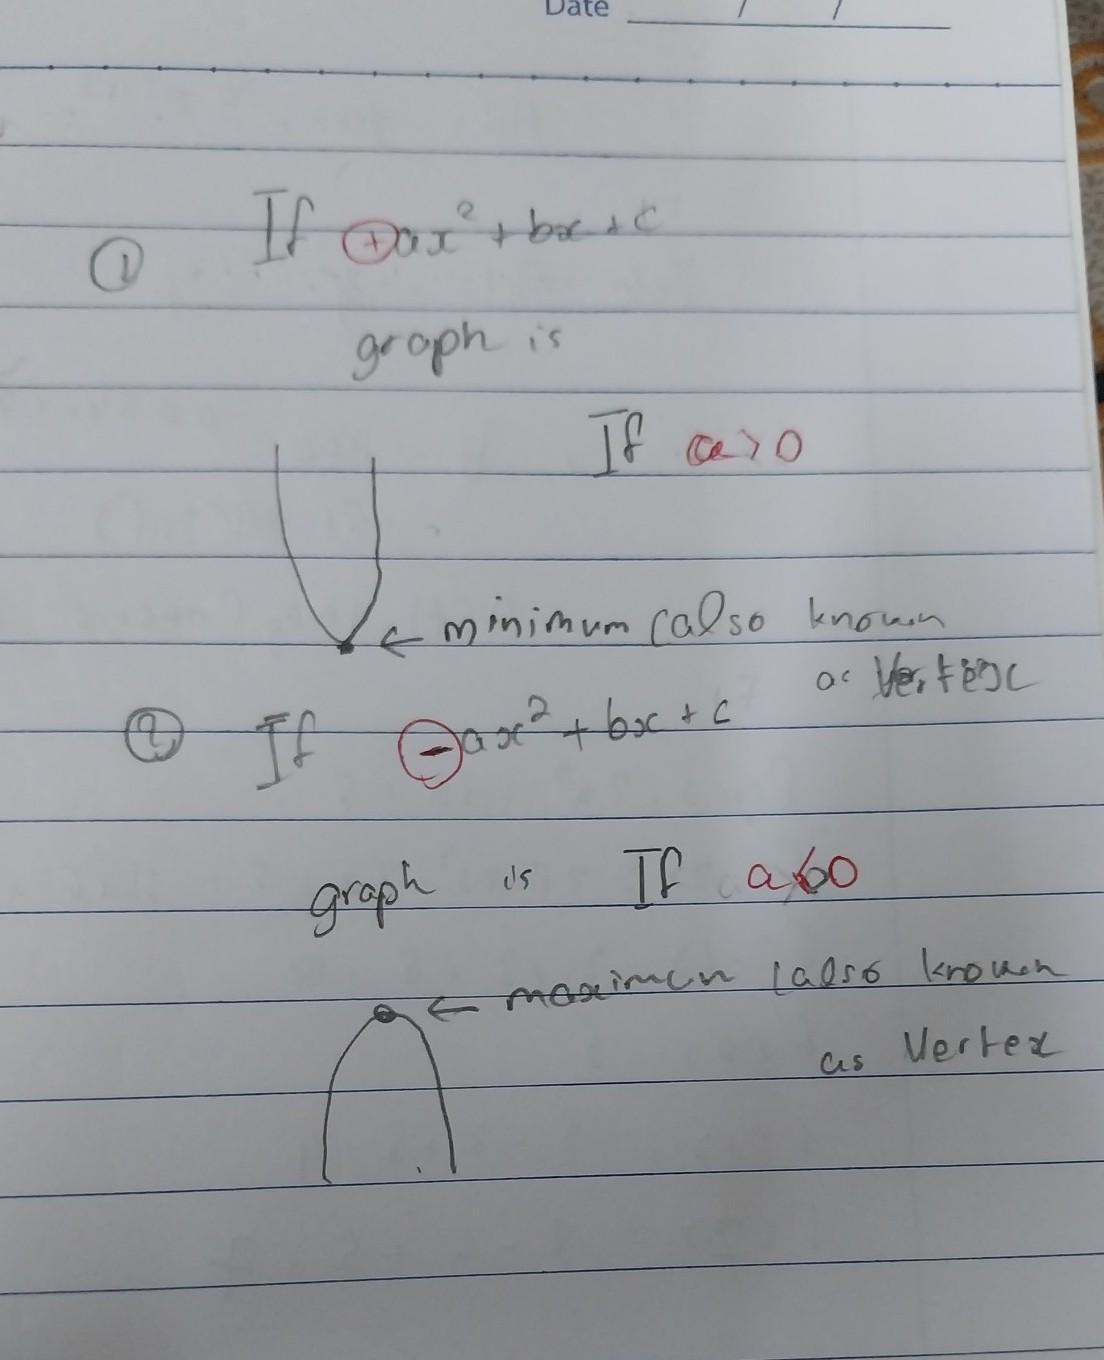 Date / /
① If +ax² + bx + c
graph is
If a>0
← minimum (also known
as Vertex
② If -ax² + bx + c
graph is If a<0
← maximum (also known
as Vertex